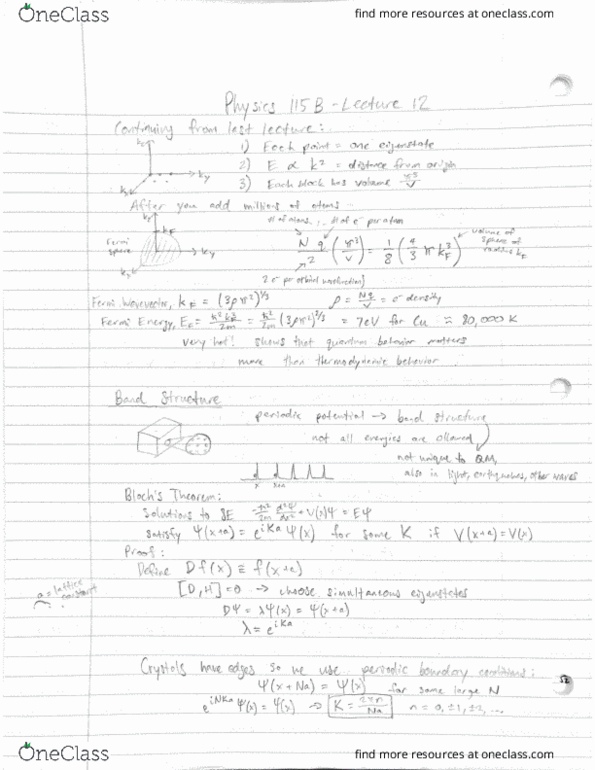 OneClass
find more resources at oneclass.com
Physics 115B - Lecture 12
Continuing from last lecture:
1) Each point = one eigenstate
2) E ∝ k² = distance from origin
3) Each block has volume π³/V
kz
ky
kx
After you add millions of atoms...
# of atoms
# of e⁻ per atom
volume of sphere of radius kF
Fermi sphere
kz
kF
ky
kx
Nq/2 (π³/V) = 1/8 (4/3 π kF³)
2 e⁻ per orbital
Fermi Wavevector, kF = (3ρπ²)^1/3
ρ = Nq/V = e⁻ density
Fermi Energy, EF = ħ²kF²/2m = ħ²/2m (3ρπ²)^2/3 = 7eV for Cu ≈ 80,000 K
very hot! shows that quantum behavior matters
more than thermodynamic behavior
Band Structure
periodic potential → band structure
not all energies are allowed
not unique to QM,
also in light, earthquakes, other waves
x x+a
Bloch's Theorem:
Solutions to SE -ħ²/2m d²Ψ/dx² + V(x)Ψ = EΨ
satisfy Ψ(x+a) = e^iKa Ψ(x) for some K if V(x+a) = V(x)
Proof:
Define Df(x) ≡ f(x+a)
a = lattice constant
[D,H]=0 → choose simultaneous eigenstates
DΨ = λΨ(x) = Ψ(x+a)
λ = e^iKa
Crystals have edges so we use periodic boundary conditions:
Ψ(x+Na) = Ψ(x) for some large N
e^iNKa Ψ(x) = Ψ(x) → K = 2πn/Na n = 0, ±1, ±2, ...
OneClass
find more resources at oneclass.com